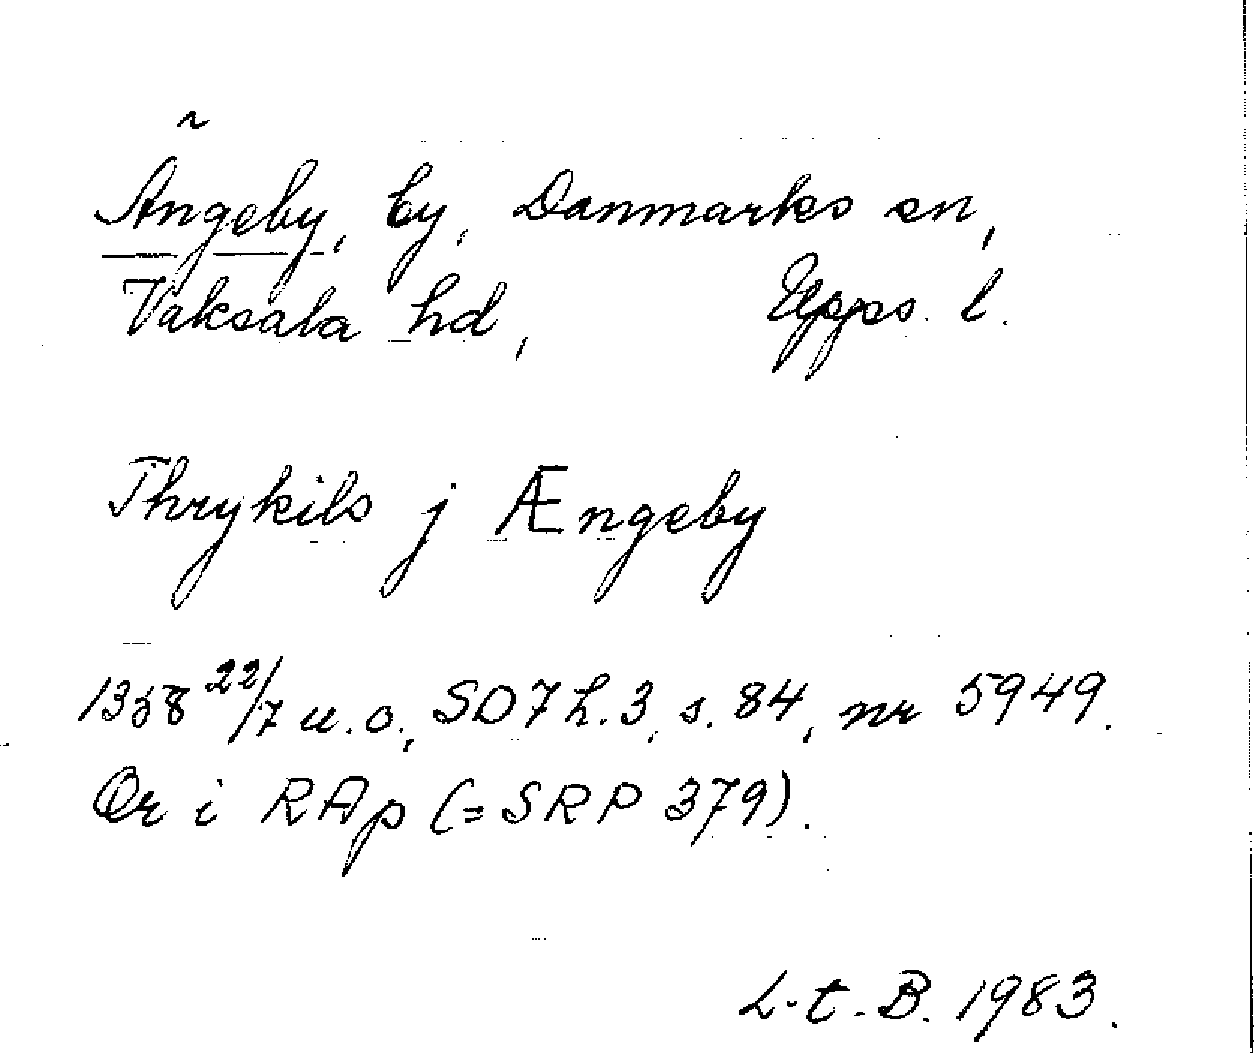 ~
Ängeby, by, Danmarks sn,
Vaksala hd, Upps. l.
Thrykils j Ængeby
1358 22/7 u.o., SD 7 h. 3, s. 84, nr 5949.
Or i RAp (= SRP 379).
L.t.B. 1983.